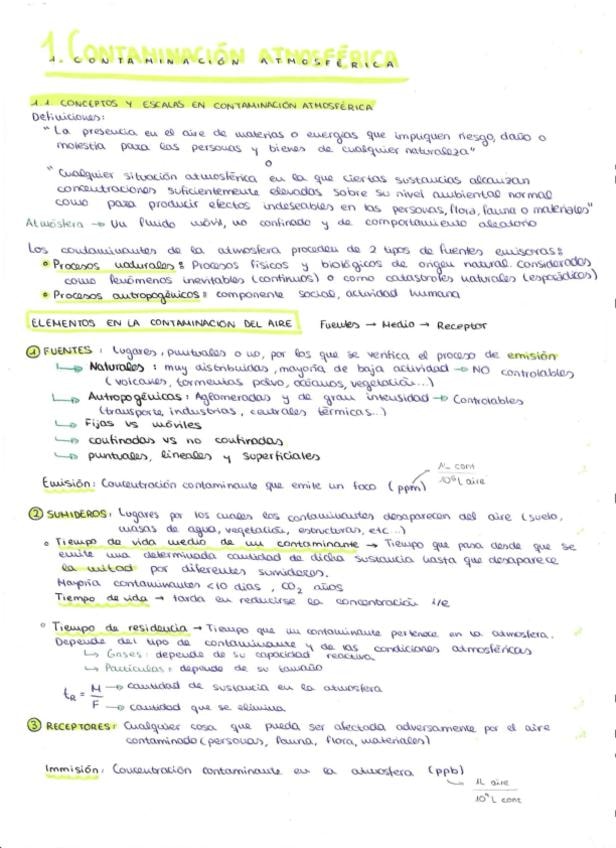 1. CONTAMINACIÓN ATMOSFÉRICA
1. CONTAMINACIÓN ATMOSFÉRICA
1.1. CONCEPTOS Y ESCALAS EN CONTAMINACIÓN ATMOSFÉRICA
Definiciones:
"La presencia en el aire de materias o energías que impliquen riesgo, daño o
molestia para las personas y bienes de cualquier naturaleza"
o
"Cualquier situación atmosférica en la que ciertas sustancias alcanzan
concentraciones suficientemente elevadas sobre su nivel ambiental normal
como para producir efectos indeseables en las personas, flora, fauna o materiales"
Atmósfera → Un fluido móvil, no confinado y de comportamiento aleatorio
Los contaminantes de la atmosfera proceden de 2 tipos de fuentes emisoras:
• Procesos naturales: Procesos físicos y biológicos de origen natural. Considerados
como fenómenos inevitables (continuos) o como catastrofes naturales (esporádicos)
• Procesos antropogénicos: componente social, actividad humana
ELEMENTOS EN LA CONTAMINACIÓN DEL AIRE Fuentes → Medio → Receptor
① FUENTES: Lugares, puntuales o no, por los que se verifica el proceso de emisión
↳ Naturales: muy distribuidas, mayoría de baja actividad → NO controlables
(volcanes, tormentas polvo, océanos, vegetación...)
↳ Antropogénicas: Aglomeradas y de gran intensidad → Controlables
(transporte, industrias, centrales térmicas...)
↳ Fijas vs móviles
↳ confinadas vs no confinadas
↳ puntuales, lineales y superficiales
Emisión: Concentración contaminante que emite un foco (ppm) → 1L cont / 10⁶ L aire
② SUMIDEROS: Lugares por los cuales los contaminantes desaparecen del aire (suelo,
masas de agua, vegetación, estructuras, etc...)
• Tiempo de vida medio de un contaminante → Tiempo que pasa desde que se
emite una determinada cantidad de dicha sustancia hasta que desaparece
la mitad por diferentes sumideros.
Mayoría contaminantes <10 días, CO₂ años
Tiempo de vida → tarda en reducirse la concentración 1/e
• Tiempo de residencia → Tiempo que un contaminante permanece en la atmosfera.
Depende del tipo de contaminante y de las condiciones atmosféricas
↳ Gases: depende de su capacidad reactiva
↳ Partículas: depende de su tamaño
t_R = M/F
M → cantidad de sustancia en la atmosfera
F → cantidad que se elimina
③ RECEPTORES: Cualquier cosa que pueda ser afectada adversamente por el aire
contaminado (personas, fauna, flora, materiales)
Immisión: Concentración contaminante en la atmosfera (ppb)
↳ 1L aire / 10⁹ L cont